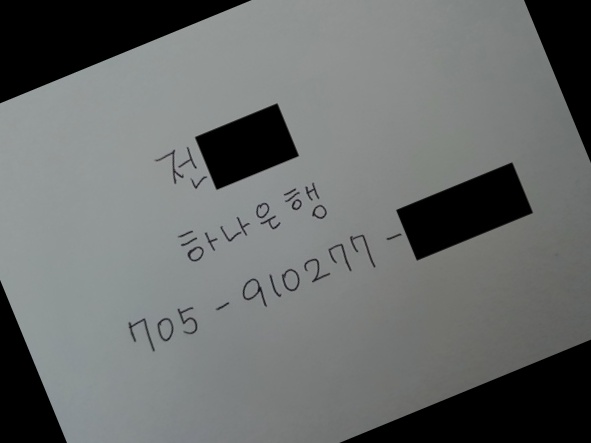 전
하나은행
705-910277-